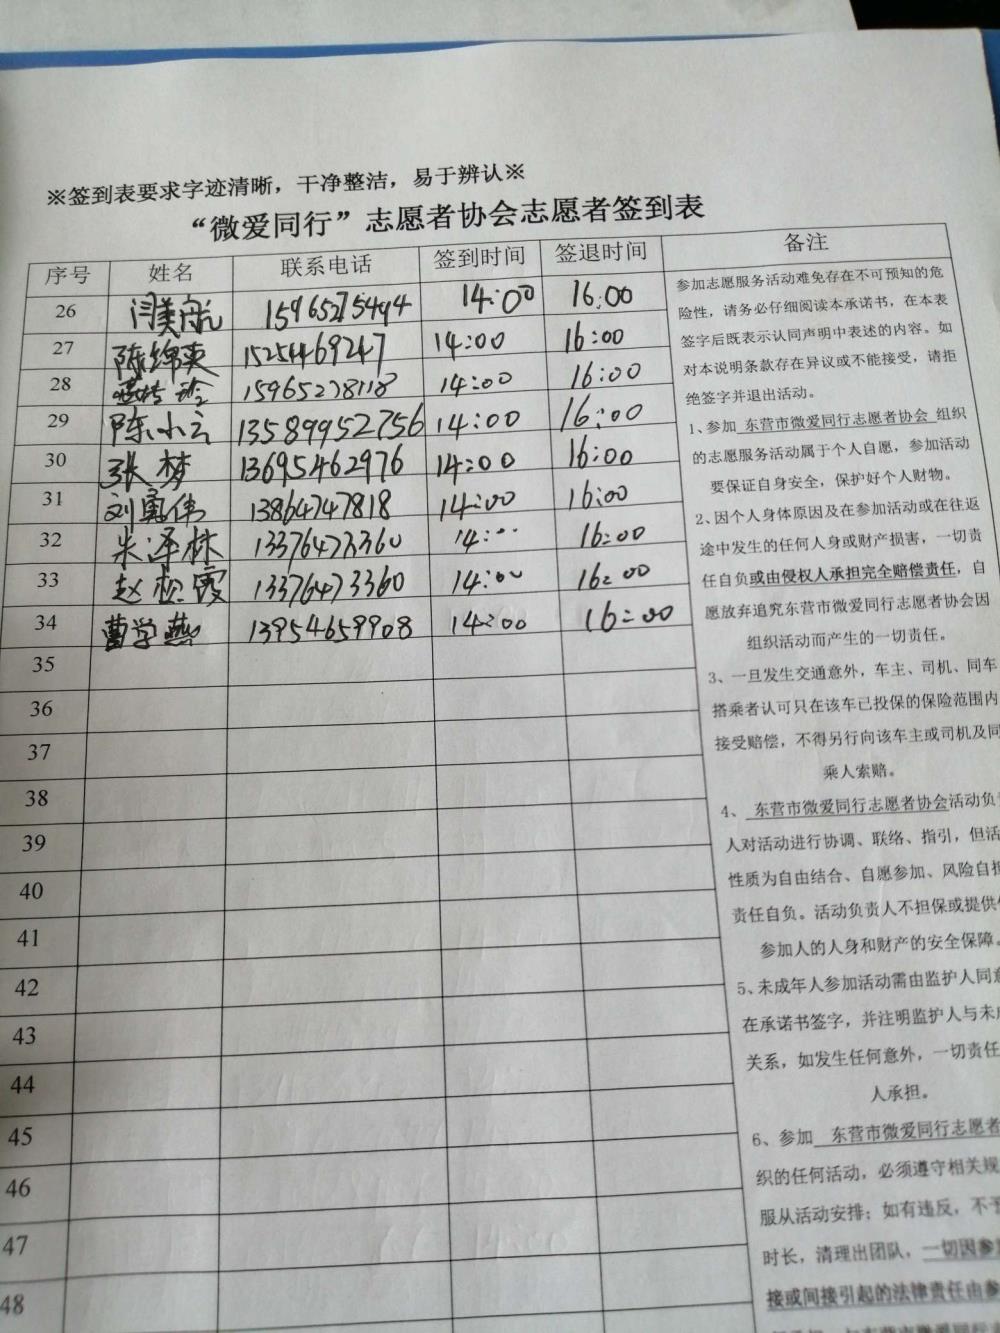 ※签到表要求字迹清晰，干净整洁，易于辨认※
“微爱同行”志愿者协会志愿者签到表
序号 姓名 联系电话 签到时间 签退时间 备注
26 闫美航 15965275494 14:00 16:00
27 陈绵爽 15254469247 14:00 16:00
28 15965278118 14:00 16:00
29 陈小云 13589952756 14:00 16:00
30 张梦 13695462976 14:00 16:00
31 刘勇伟 13864747818 14:00 16:00
32 朱泽林 13376473360 14:00 16:00
33 赵 霞 13376473360 14:00 16:00
34 曹学燕 13954659908 14:00 16:00
35
36
37
38
39
40
41
42
43
44
45
46
47
48
参加志愿服务活动难免存在不可预知的危
险性，请务必仔细阅读本承诺书，在本表
签字后既表示认同声明中表述的内容。如
对本说明条款存在异议或不能接受，请拒
绝签字并退出活动。
1、参加 东营市微爱同行志愿者协会 组织
的志愿服务活动属于个人自愿，参加活动
要保证自身安全，保护好个人财物。
2、因个人身体原因及在参加活动或在往返
途中发生的任何人身或财产损害，一切责
任自负或由侵权人承担完全赔偿责任，自
愿放弃追究东营市微爱同行志愿者协会因
组织活动而产生的一切责任。
3、一旦发生交通意外，车主、司机、同车
搭乘者认可只在该车已投保的保险范围内
接受赔偿，不得另行向该车主或司机及同
乘人索赔。
4、 东营市微爱同行志愿者协会活动负责
人对活动进行协调、联络、指引，但活
性质为自由结合、自愿参加、风险自担
责任自负。活动负责人不担保或提供
参加人的人身和财产的安全保障。
5、未成年人参加活动需由监护人同意
在承诺书签字，并注明监护人与未成
关系，如发生任何意外，一切责任
人承担。
6、参加 东营市微爱同行志愿者
织的任何活动，必须遵守相关规
服从活动安排；如有违反，不予
时长，清理出团队，一切因参
接或间接引起的法律责任由参